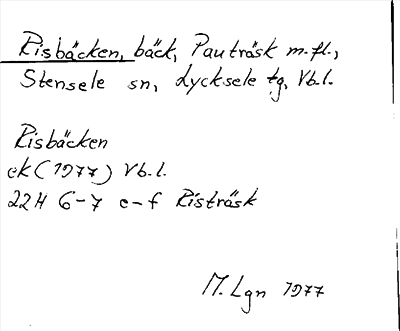 Risbäcken, bäck, Pauträsk m.fl.,
Stensele sn, Lycksele tg, Vb.l.
Risbäcken
ek (1977) Vb.l.
22H 6-7 e-f Risträsk
M. Lgn 1977